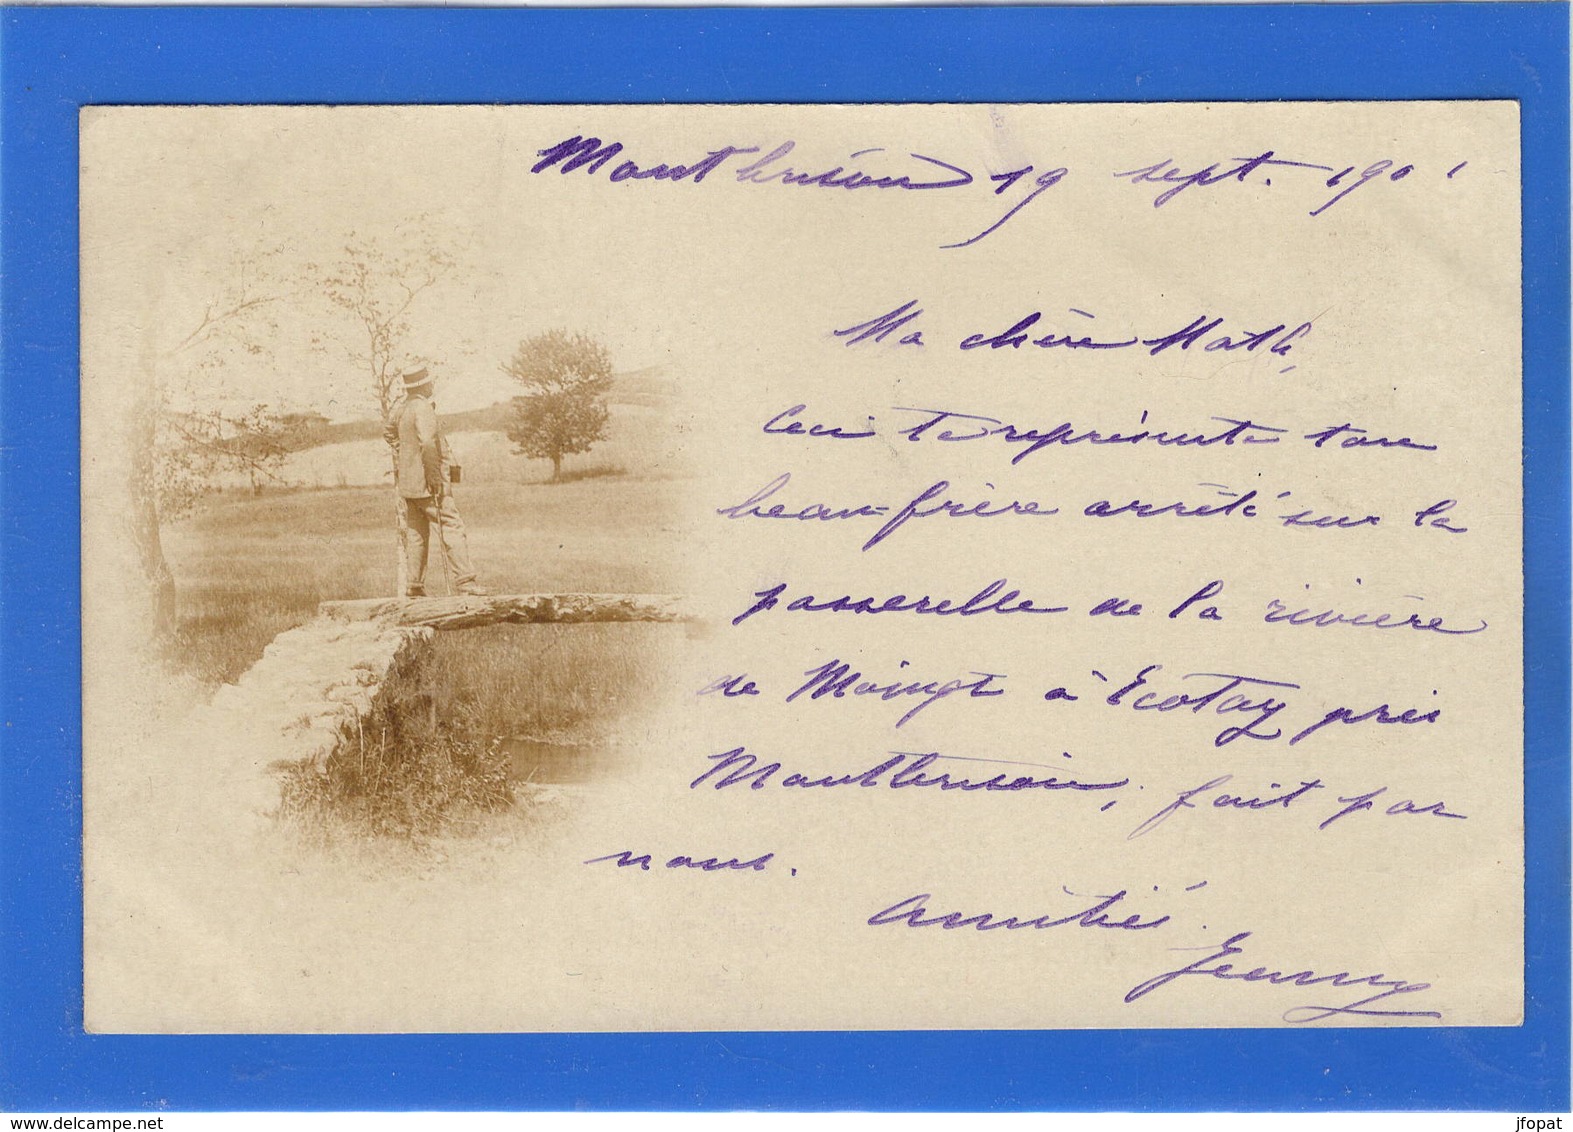 Montbrison 19 sept. 1901
Ma chère Math,
Ceci te représente ton
beau-frère arrêté sur la
passerelle de la rivière
de Moingt à Ecotay près
Montbrison, fait par
nous.
Amitiés.
Jenny
www.delcampe.net
jfopat